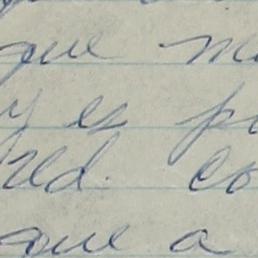 que m
y es p
red. co
que a